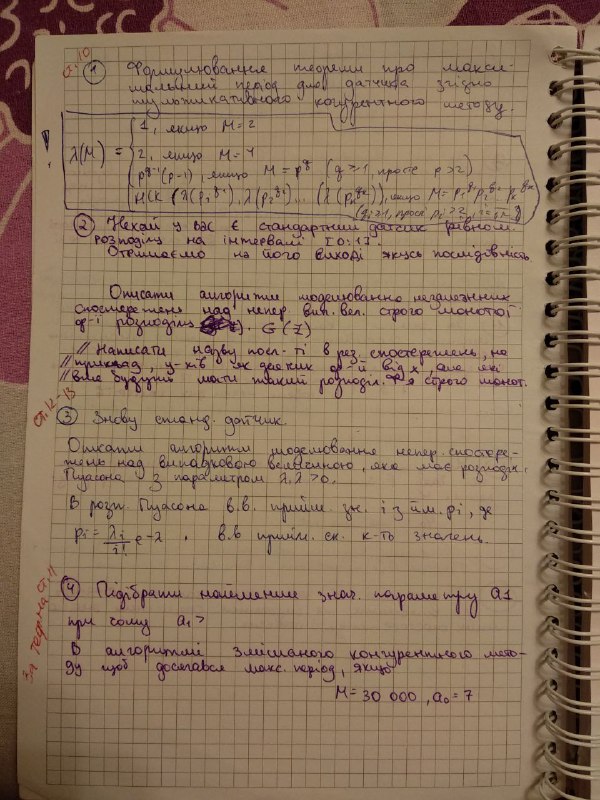 ст. 10
① Формулювання теореми про макси-
мальний період для датчика згідно
мультиплікативного конгруентного методу.
λ(M) = { 1, якщо M=2
2, якщо M=4
p^(q-1)(p-1), якщо M = p^q (q≥1, просте p>2)
НСК (λ(p₁^q₁), λ(p₂^q₂)... (λ(pₖ^qₖ)), якщо M = p₁^q₁ p₂^q₂ pₖ^qₖ
② Нехай у вас є стандартний датчик рівном.
розподілу на інтервалі [0;1].
Отримаємо на його виході якусь послідовність.
Описати алгоритм моделювання незалежних
спостережень над непер. вип. вел. строго монотої
ф-ї розподілу G(z)
// Написати назву посл-ті в рез. спостережень, на
// приклад, y-ків як деяких ф-й від x, але які
// вже будуть мати такий розподіл. Ф-я строго монот.
ст. 12-13
③ Знову станд. датчик.
Описати алгоритм моделювання непер. спостере-
жень над випадкового величиною, яка має розподіл
Пуасона з параметром λ, λ>0.
В розп. Пуасона в.в. прийм. зн. i з йм. pi, де
pi = λi/i! e-λ в.в прийм. ск. к-ть значень.
За теор на ст. 11
④ Підібрати найменше знач. параметру a1
при чому a₁ >
В алгоритмі змішаного конгруентного мето-
ду щоб досягався макс. період, якщо
M=30 000, a₀=7